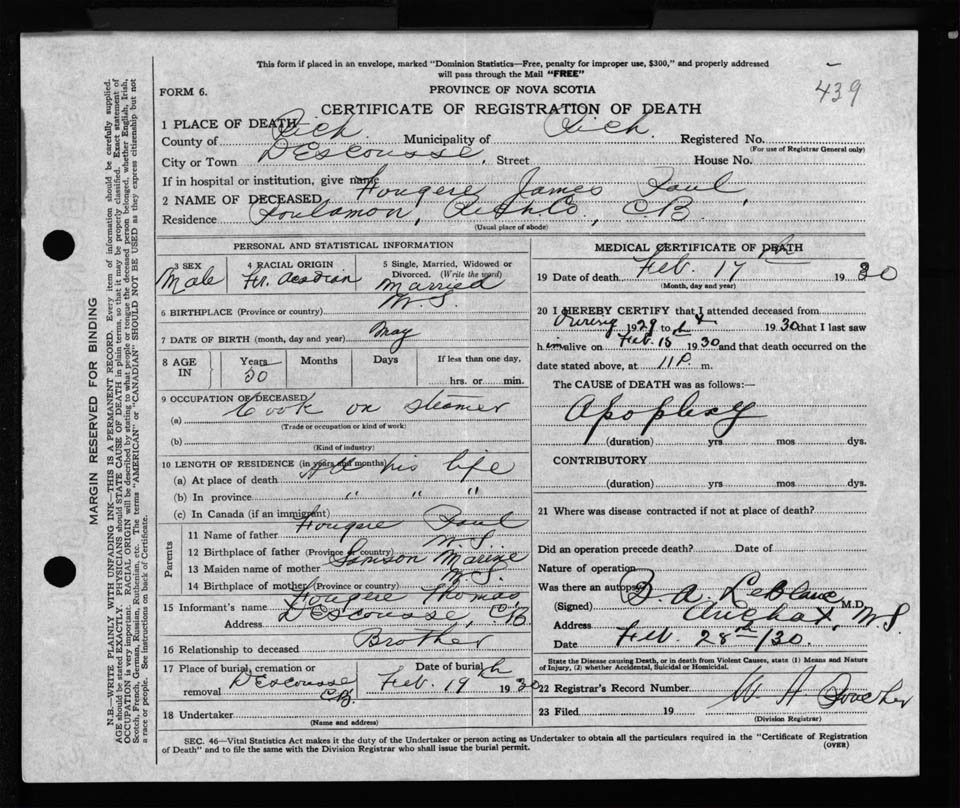 This form if placed in an envelope, marked "Dominion Statistics—Free, penalty for improper use, $300," and properly addressed
will pass through the Mail "FREE"
439
FORM 6.
PROVINCE OF NOVA SCOTIA
CERTIFICATE OF REGISTRATION OF DEATH
1 PLACE OF DEATH
County of Rich. Municipality of Rich. Registered No.
(For use of Registrar General only)
City or Town DEscousse, Street House No.
If in hospital or institution, give name
2 NAME OF DECEASED Fougere James Paul,
Residence Poulamon, Rich Co, C.B.
(Usual place of abode)
PERSONAL AND STATISTICAL INFORMATION
3 SEX
Male
4 RACIAL ORIGIN
Fr. Acadian
5 Single, Married, Widowed or
Divorced. (Write the word)
Married
6 BIRTHPLACE (Province or country) N.S.
7 DATE OF BIRTH (month, day and year) May
8 AGE IN
Years Months Days If less than one day,
50 hrs. or min.
9 OCCUPATION OF DECEASED
(a) Cook on steamer
(Trade or occupation or kind of work)
(b)
(Kind of industry)
10 LENGTH OF RESIDENCE (in years and months)
(a) At place of death All his life
(b) In province " " "
(c) In Canada (if an immigrant)
Parents
11 Name of father Fougere Paul
12 Birthplace of father (Province or country) N.S.
13 Maiden name of mother Samson Marine
14 Birthplace of mother (Province or country) N.S.
15 Informant's name Fougere Thomas
Address DEscousse, C.B.
16 Relationship to deceased Brother
17 Place of burial, cremation or
removal DEscousse C.B.
Date of burial
Feb. 19th 1930
18 Undertaker
(Name and address)
MEDICAL CERTIFICATE OF DEATH
19 Date of death Feb. 17th 1930
(Month, day and year)
20 I HEREBY CERTIFY that I attended deceased from
During 1929 to 1930 that I last saw
him alive on Feb. 15 1930 and that death occurred on the
date stated above, at 11 P. m.
The CAUSE of DEATH was as follows:—
Apoplexy
(duration) yrs mos dys.
CONTRIBUTORY
(duration) yrs. mos dys.
21 Where was disease contracted if not at place of death?
Did an operation precede death? Date of
Nature of operation
Was there an autopsy
(Signed) B. A. LeBlanc, M.D.
Address Arichat, N.S
Date Feb. 28th/30
State the Disease causing Death, or in death from Violent Causes, state (1) Means and Nature
of Injury, (2) whether Accidental, Suicidal or Homicidal.
22 Registrar's Record Number
23 Filed 19 W A
(Division Registrar)
SEC. 46—Vital Statistics Act makes it the duty of the Undertaker or person acting as Undertaker to obtain all the particulars required in the "Certificate of Registration
of Death" and to file the same with the Division Registrar who shall issue the burial permit.
(OVER)
MARGIN RESERVED FOR BINDING
N.B.—WRITE PLAINLY WITH UNFADING INK—THIS IS A PERMANENT RECORD. Every item of information should be carefully supplied.
AGE should be stated EXACTLY. PHYSICIANS should STATE CAUSE OF DEATH in plain terms, so that it may be properly classified. Exact statement of
OCCUPATION is very important. RACIAL ORIGIN will be described by stating to what people or tongue the deceased person belonged, whether English, Irish,
Scotch, French, German, Russian, Ruthenian, etc. The terms "AMERICAN" or "CANADIAN" SHOULD NOT BE USED as they express citizenship but not
a race or people. See instructions on back of Certificate.